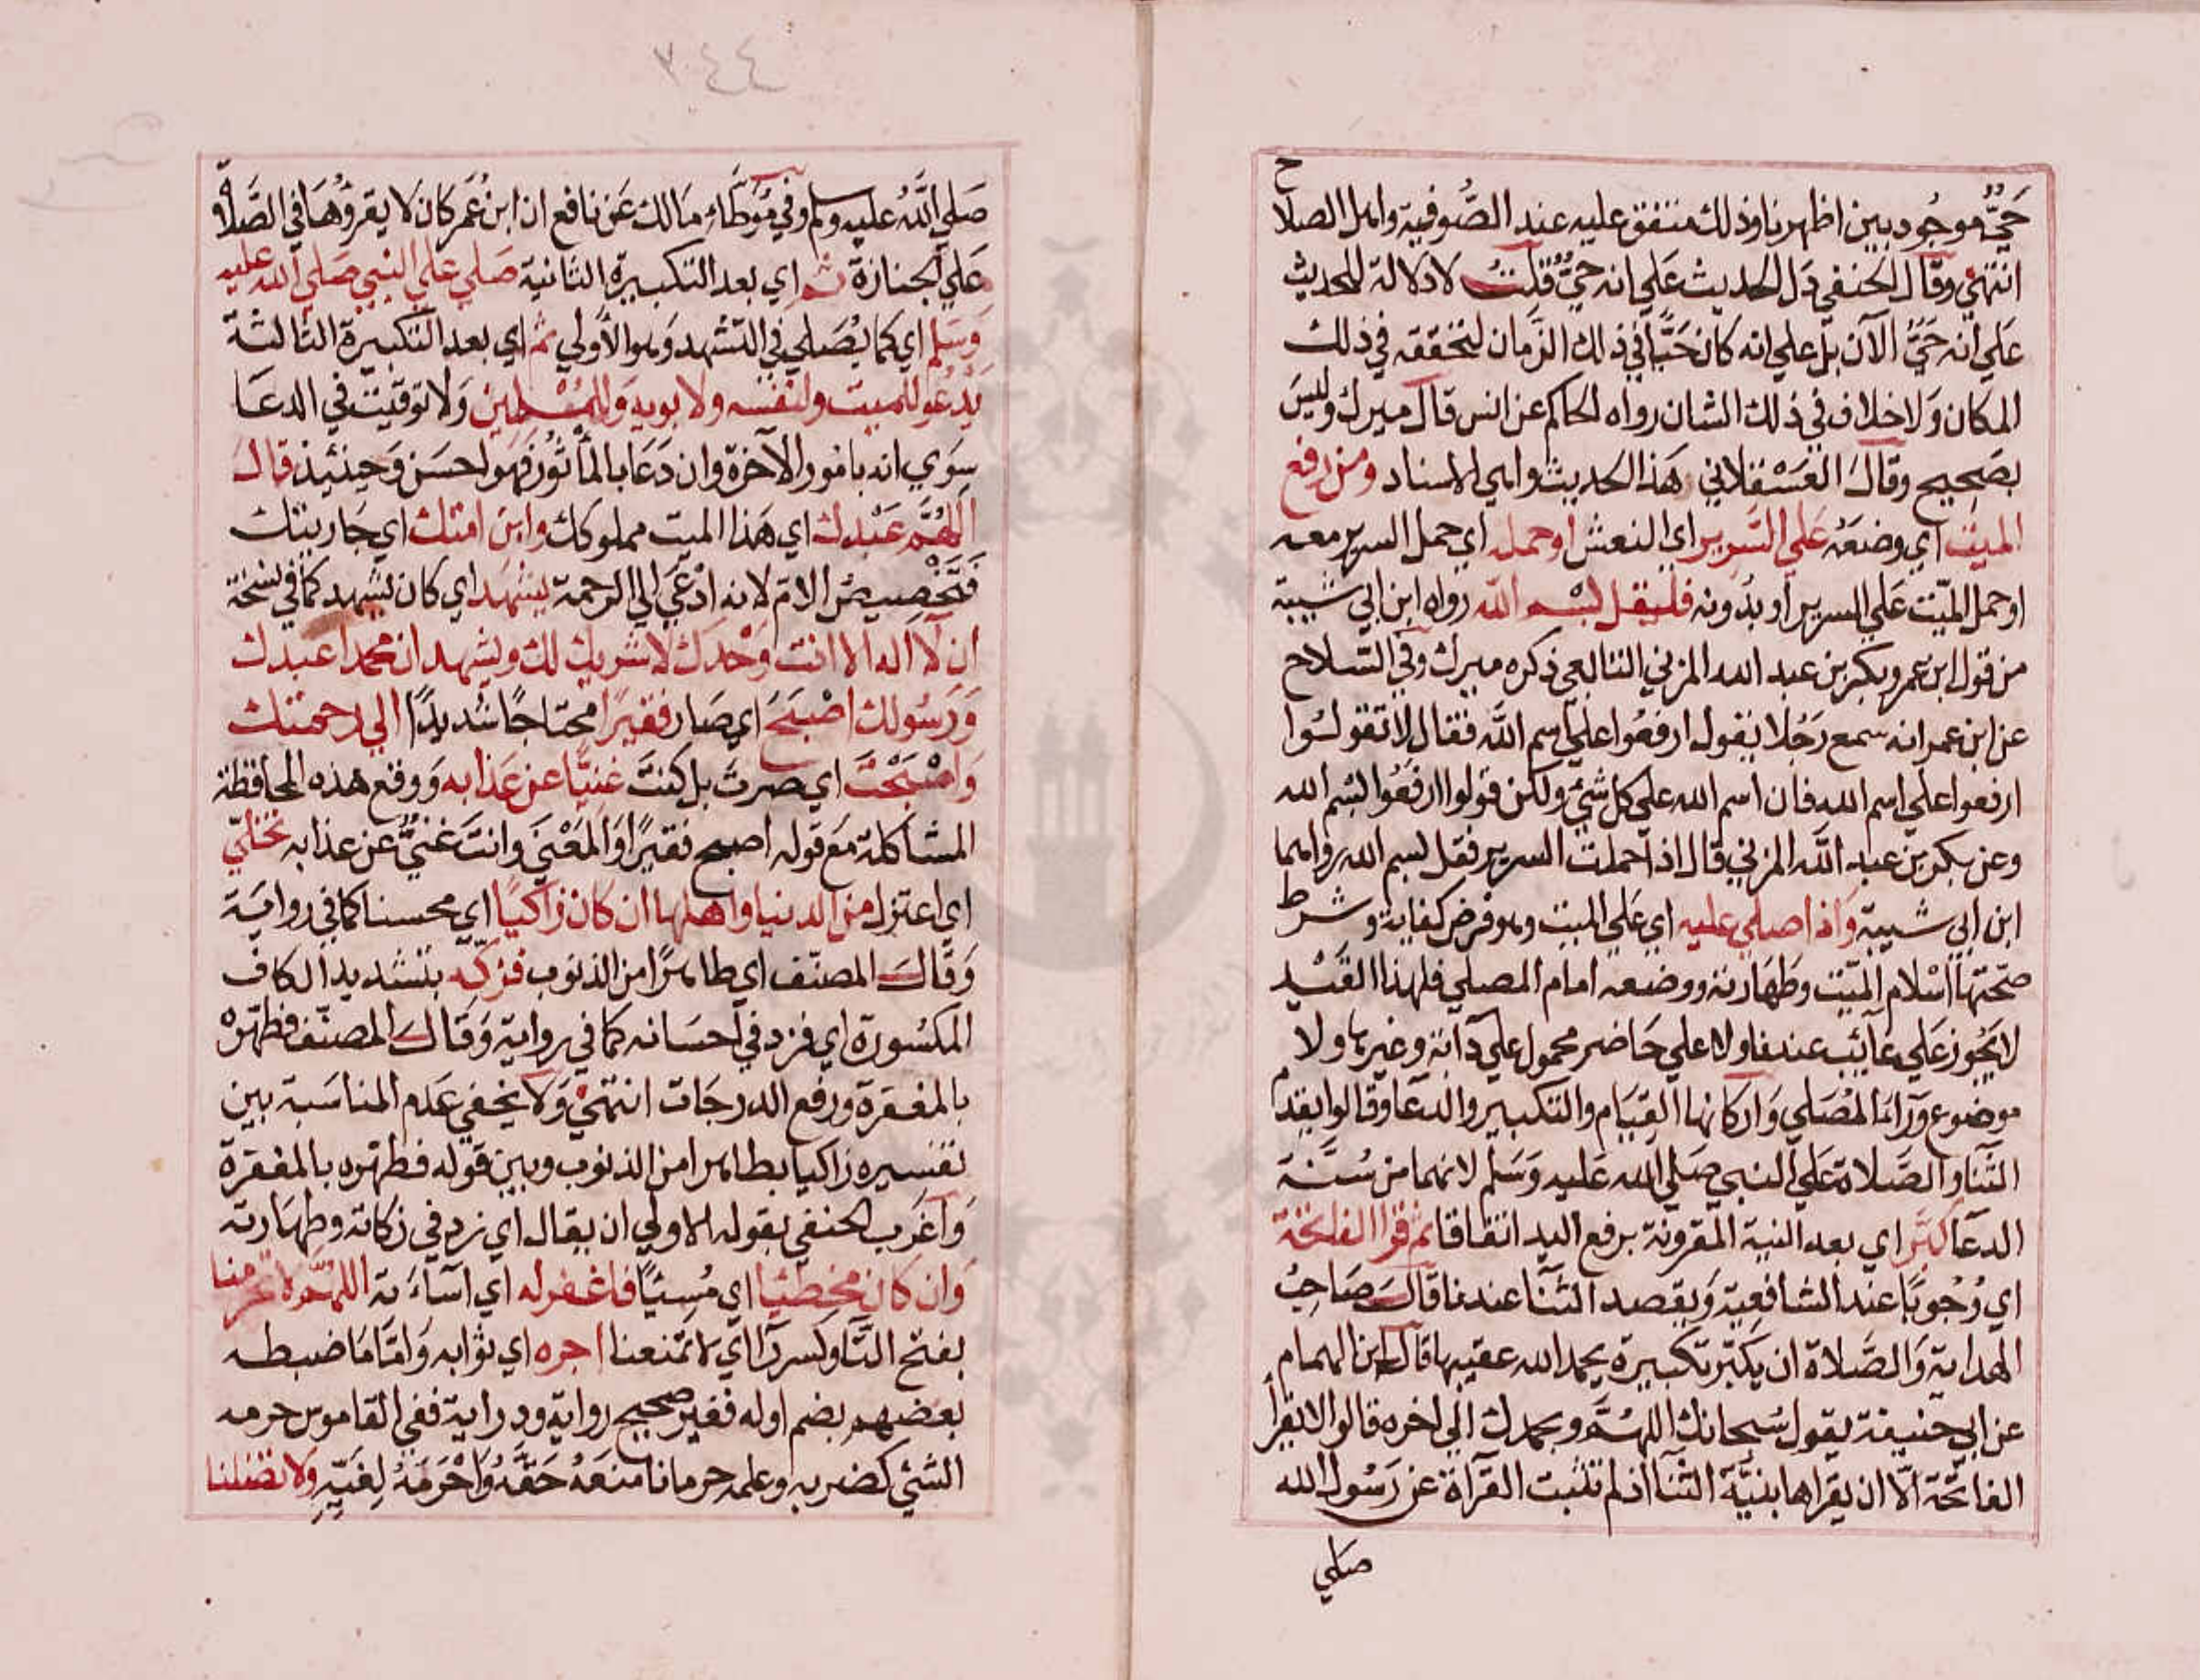 حيّ موجود بين اظهرنا وذلك متفق عليه عند الصّوفية واهل الصلا
ح
انتهى وقال الحنفي دل الحديث علي انه حيّ قلت لا دلالة للحديث
علي انه حيّ الآن بل علي انه كان حيّا في ذلك الزمان لتحققه في ذلك
المكان ولا خلاف في ذلك الشان رواه الحاكم عن انس قال ميرك وليس
بصحيح وقال العسقلاني هذا الحديث واهي الاسناد ومن رفع
الميت اي وضعه علي السرير اي النعش او حمله اي حمل السرير معه
او حمل الميّت علي السرير او بدونه فليقل بسم الله رواه ابن ابي شيبة
من قول ابن عمر وبكر بن عبد الله المزني التابعي ذكره ميرك وفي السلاح
عن ابن عمر انه سمع رجلا يقول ارفعوا علي اسم الله فقال لا تقولوا
ارفعوا علي اسم الله فان اسم الله علي كل شئ ولكن قولوا ارفعوا بسم الله
وعن بكر بن عبد الله المزني قال اذا حملت السرير فقل بسم الله رواهما
ابن ابي شيبة واذا صلي عليه اي علي الميت وهو فرض كفاية وشرط
صحّتها اسلام الميّت وطهارته ووضعه امام المصلي فلهذا القيد
لا يجوز علي غائب عندنا ولا علي حاضر محمول علي دابة وغيرها ولا
موضوع وراء المصلي واركانها القيام والتكبير والدعا وقالوا يقدم
الثنا والصّلاة علي النبي صلي الله عليه وسلم لانهما من سُنّة
الدعا كبّر اي بعد النية المقرونة برفع اليد اتفاقا ثم قرا الفاتحة
اي وُجوبًا عند الشافعية وبقصد الثنا عندنا قال صاحب
الهداية والصّلاة ان يكبّر تكبيرة يحمد الله عقيبها قال ابن الهمام
عن ابي حنيفة يقول سُبحانك اللهُمّ وبحمدك الي اخره قالوا لا يقرأ
الفاتحة الّا ان يقراها بنيّة الثنا اذ لم تثبت القرآة عن رسول الله
صلي
٣٤٤
صلي الله عليه وسلم وفي موطّاء مالك عن نافع ان ابن عمر كان لا يقرؤها في الصّلاة
علي الجنازة ثم اي بعد التكبيرة الثانية صلي علي النبي صلي الله عليه
وسلم اي كما يُصلي في التشهد وهو الأولي ثم اي بعد التكبيرة الثالثة
يدعو للميت ولنفسه ولابويه وللمسلمين ولا توقيت في الدعا
سوي انه بامور الآخرة وان دعا بالمأثور فهو احسن وحينئذ قال
اللهُمّ عبدك اي هذا الميت مملوكك وابن امتك اي جاريتك
فتخصيص الامّ لانه ادعي الي الرحمة يشهد اي كان يشهد كما في نسخة
ان لا اله الا انت وحدك لا شريك لك ويشهد ان محمدا عبدك
ورسولك اصبح اي صار فقيرًا محتاجًا شديدًا الي رحمتك
واصبحت اي صرت بل كنت غنيّا عن عذابه ووقع هذه المحافظة
المشاكلة مع قوله اصبح فقيرًا والمعنى وانت غنيّ عن عذابه تخلّي
اي اعتزل من الدنيا واهلها ان كان زاكيًا اي محسنا كما في رواية
وقال المصنّف اي طاهرًا من الذنوب فزكّه بتشديد الكاف
المكسُورة اي فزد في احسانه كما في رواية وقال المصنّف فطهّره
بالمغفرة ورفع الدرجات انتهى ولا يخفي عدم المناسبة بين
تفسيره زاكيا بطاهرا من الذنوب وبين قوله فطهّره بالمغفرة
واغرب الحنفي بقوله الاولي ان يقال اي زد في زكاته وطهارته
وان كان مخطئيا اي مُسيئًا فاغفر له اي اساءته اللهُمّ لا تحرمنا
بفتح التّا وكسر رآ اي لا تمنعنا اجره اي ثوابه وامّا ما ضبطه
بعضهم بضم اوله فغير صحيح رواية ودراية ففي القاموس حرمه
الشئ كضربه وعلمه حرمانا منعه حقّه واحرمه لغيّه ولا تضلنا